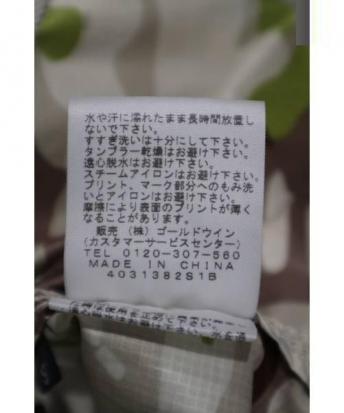 水や汗に濡れたまま長時間放置し
ないで下さい。
すすぎ洗いは十分にして下さい。
タンブラー乾燥はお避け下さい。
遠心脱水はお避け下さい。
スチームアイロンはお避け下さい。
プリント、マーク部分へのもみ洗
いとアイロンはお避け下さい。
摩擦により表面のプリントが薄く
なることがあります。
販売 (株) ゴールドウイン
(カスタマーサービスセンター)
TEL 0120-307-560
MADE IN CHINA
4031382S1B